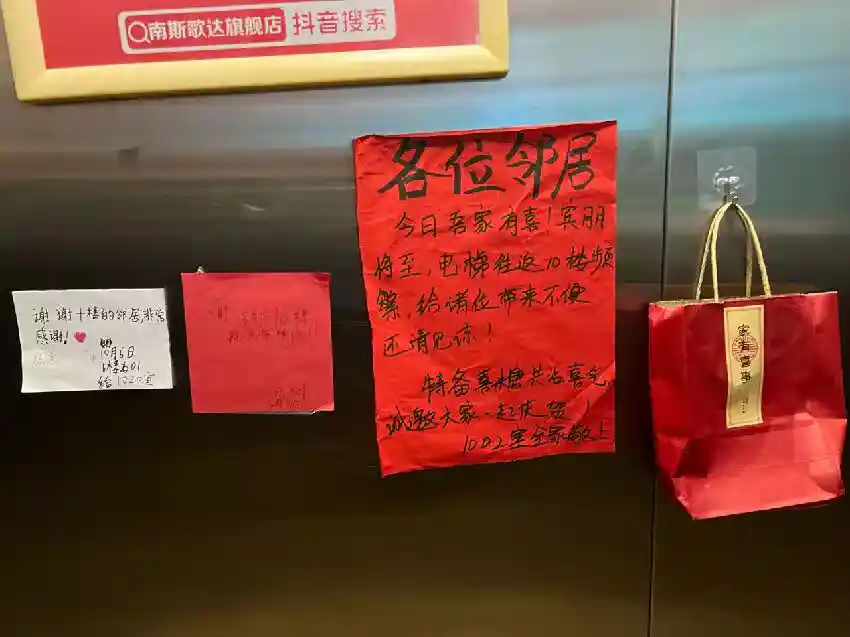 南斯歌达旗舰店 抖音搜索
各位邻居
今日吾家有喜！宾朋
将至，电梯往返10楼频
繁，给诸位带来不便
还请见谅！
特备喜糖共沾喜气
诚邀大家一起庆贺！
1002室全家敬上
谢谢十楼的邻居非常
感谢！
10月5日
给1020室
家有喜事